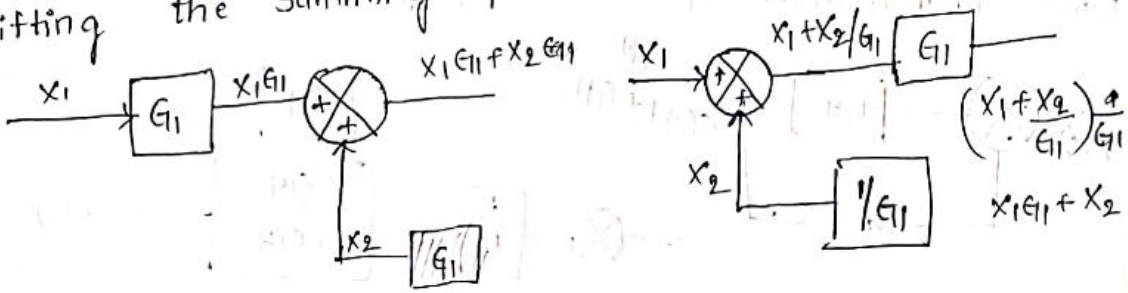 ifting the
X1 G1 X1G1 + + X1G1+X2G1
X2 G1
X1 + + X1+X2/G1 G1
(X1+X2/G1)
X2 1/G1 X1G1+X2